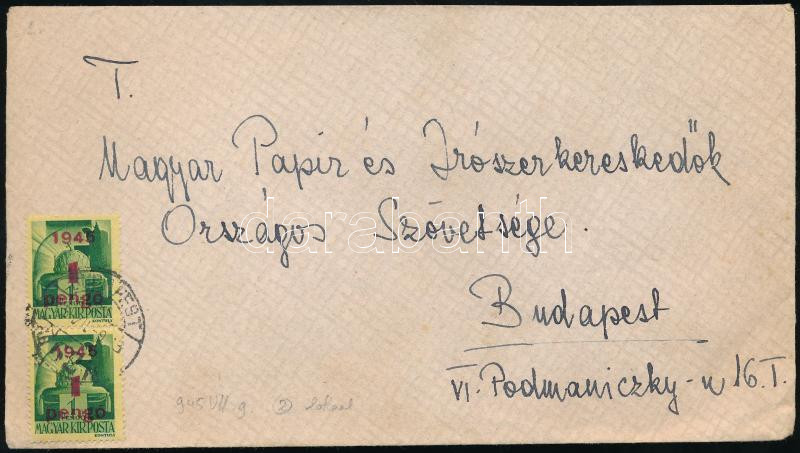 T.
Magyar Papir és Irószerkereskedők
Országos Szövetsége.
darabanth
Budapest
VI. Podmaniczky-u 16. I.
1945
1
pengő
MAGYAR KIR. POSTA
1945
1
pengő
MAGYAR KIR. POSTA
945 VII 9.